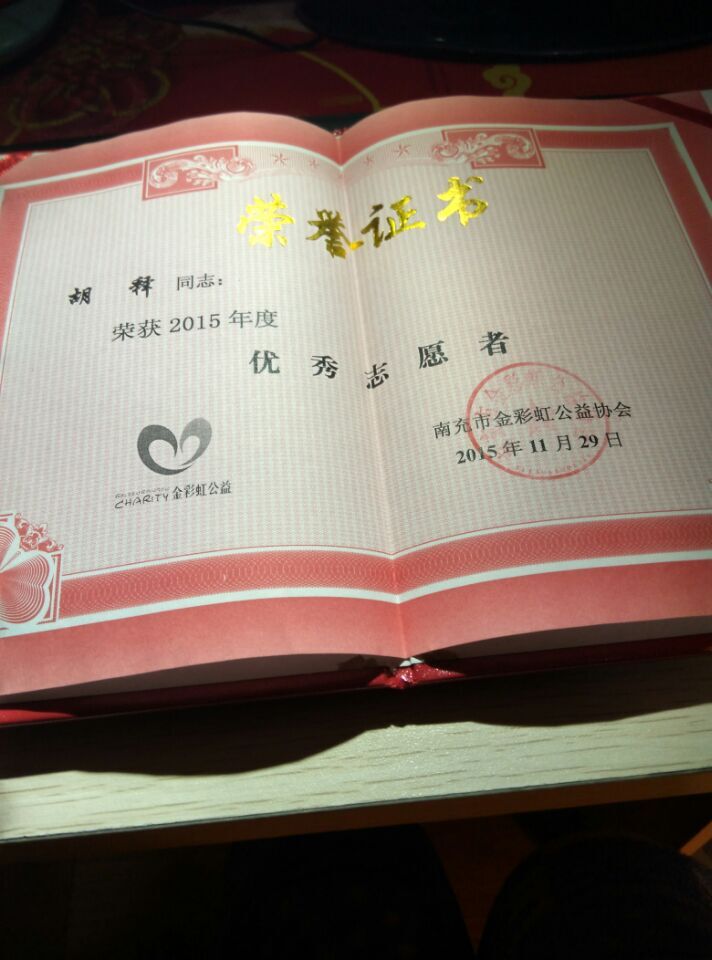 荣誉证书
胡 释 同志：
荣获 2015 年度
优秀志愿者
南充市金彩虹公益协会
2015 年 11 月 29 日
CHARITY 金彩虹公益